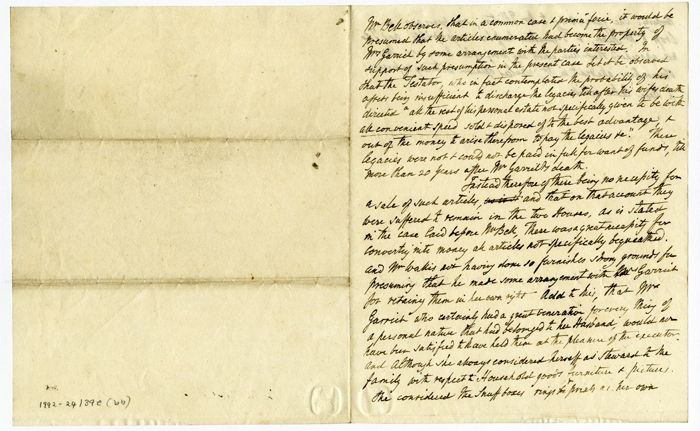 Mr Bell observes, that in a common case & primâ facie, it would be
presumed that the articles enumerated had become the property of
Mrs Garrick by some arrangement with the parties interested. In
support of such presumption in the present case let it be observed
that the Testator, who in fact contemplated the probability of his
effects being insufficient to discharge the legacies till after his wifes death
directed "all the rest of his personal estate not specifically given to be with
all convenient speed sold & disposed of to the best advantage, &
out of the money to arise therefrom to pay the legacies &c." These
legacies were not & could not be paid in full for want of funds, till
more than 20 years after Mr Garrick's death.
Instead therefore of there being no necessity for
a sale of such articles, and that on that account they
were suffered to remain in the two Houses, as is stated
in the case laid before Mr Bell, There was a great necessity for
converting into money all articles not specifically bequeathed.
and Mr Wallis not having done so furnishes strong grounds for
presuming that he made some arrangement with Mrs Garrick
for retaining them in her own right Add to this, that Mrs
Garrick who certainly had a great veneration for every thing of
a personal nature that had belonged to her Husband, would not
have been satisfied to have held them at the pleasure of the executor.
and although she always considered herself as Steward to the
family with respect to Household goods furniture & pictures.
She considered the Snuff boxes rings as her own
1992-24/39e (bb)